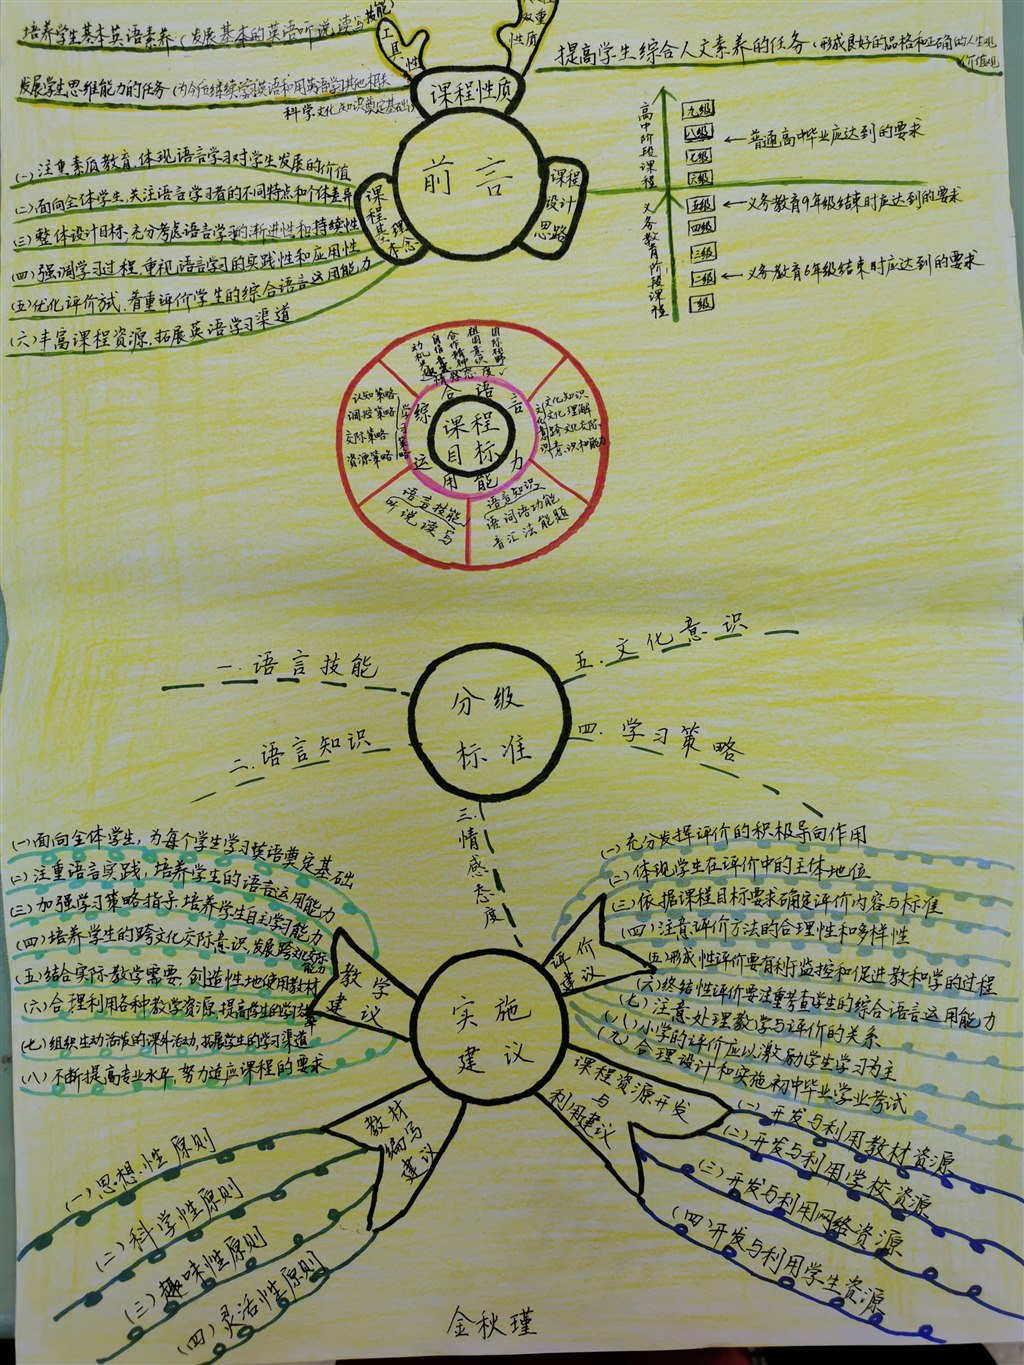 培养学生基本英语素养(发展基本的英语听说读写技能)
工具性
双重性质
提高学生综合人文素养的任务(形成良好的品格和正确的人生观
价值观
发展学生思维能力的任务(为今后继续学习英语和用英语学习其他相关
科学文化知识奠定基础
课程性质
前言
课程基本理念
课程设计思路
(一)注重素质教育,体现语言学习对学生发展的价值
(二)面向全体学生,关注语言学习者的不同特点和个体差异
(三)整体设计目标,充分考虑语言学习的渐进性和持续性
(四)强调学习过程,重视语言学习的实践性和应用性
(五)优化评价方式,着重评价学生的综合语言运用能力
(六)丰富课程资源,拓展英语学习渠道
高中阶段课程
九级
八级 ←普通高中毕业应达到的要求
七级
六级
义务教育阶段课程
五级 ←义务教育9年级结束时应达到的要求
四级
三级
二级 ←义务教育6年级结束时应达到的要求
一级
课程目标
综合语言运用能力
情感态度
动机兴趣
自信意志
合作精神
祖国意识
国际视野
学习策略
认知策略
调控策略
交际策略
资源策略
文化意识
文化知识
文化理解
跨文化交际
意识和能力
语言技能
听说读写
语言知识
语词语功能
音汇法能题
分级标准
一.语言技能
二.语言知识
三.情感态度
四.学习策略
五.文化意识
实施建议
教学建议
(一)面向全体学生,为每个学生学习英语奠定基础
(二)注重语言实践,培养学生的语言运用能力
(三)加强学习策略指导,培养学生自主学习能力
(四)培养学生的跨文化交际意识,发展跨文化交际能力
(五)结合实际教学需要,创造性地使用教材
(六)合理利用各种教学资源,提高学生的学习效率
(七)组织生动活泼的课外活动,拓展学生的学习渠道
(八)不断提高专业水平,努力适应课程的要求
评价建议
(一)充分发挥评价的积极导向作用
(二)体现学生在评价中的主体地位
(三)依据课程目标要求确定评价内容与标准
(四)注意评价方法的合理性和多样性
(五)形成性评价要有利于监控和促进教和学的过程
(六)终结性评价要注重考查学生的综合语言运用能力
(七)注意处理教学与评价的关系
(八)小学的评价应以激励学生学习为主
(九)合理设计和实施初中毕业学业考试
教材编写建议
(一)思想性原则
(二)科学性原则
(三)趣味性原则
(四)灵活性原则
课程资源开发与利用建议
(一)开发与利用教材资源
(二)开发与利用学校资源
(三)开发与利用网络资源
(四)开发与利用学生资源
金秋瑾